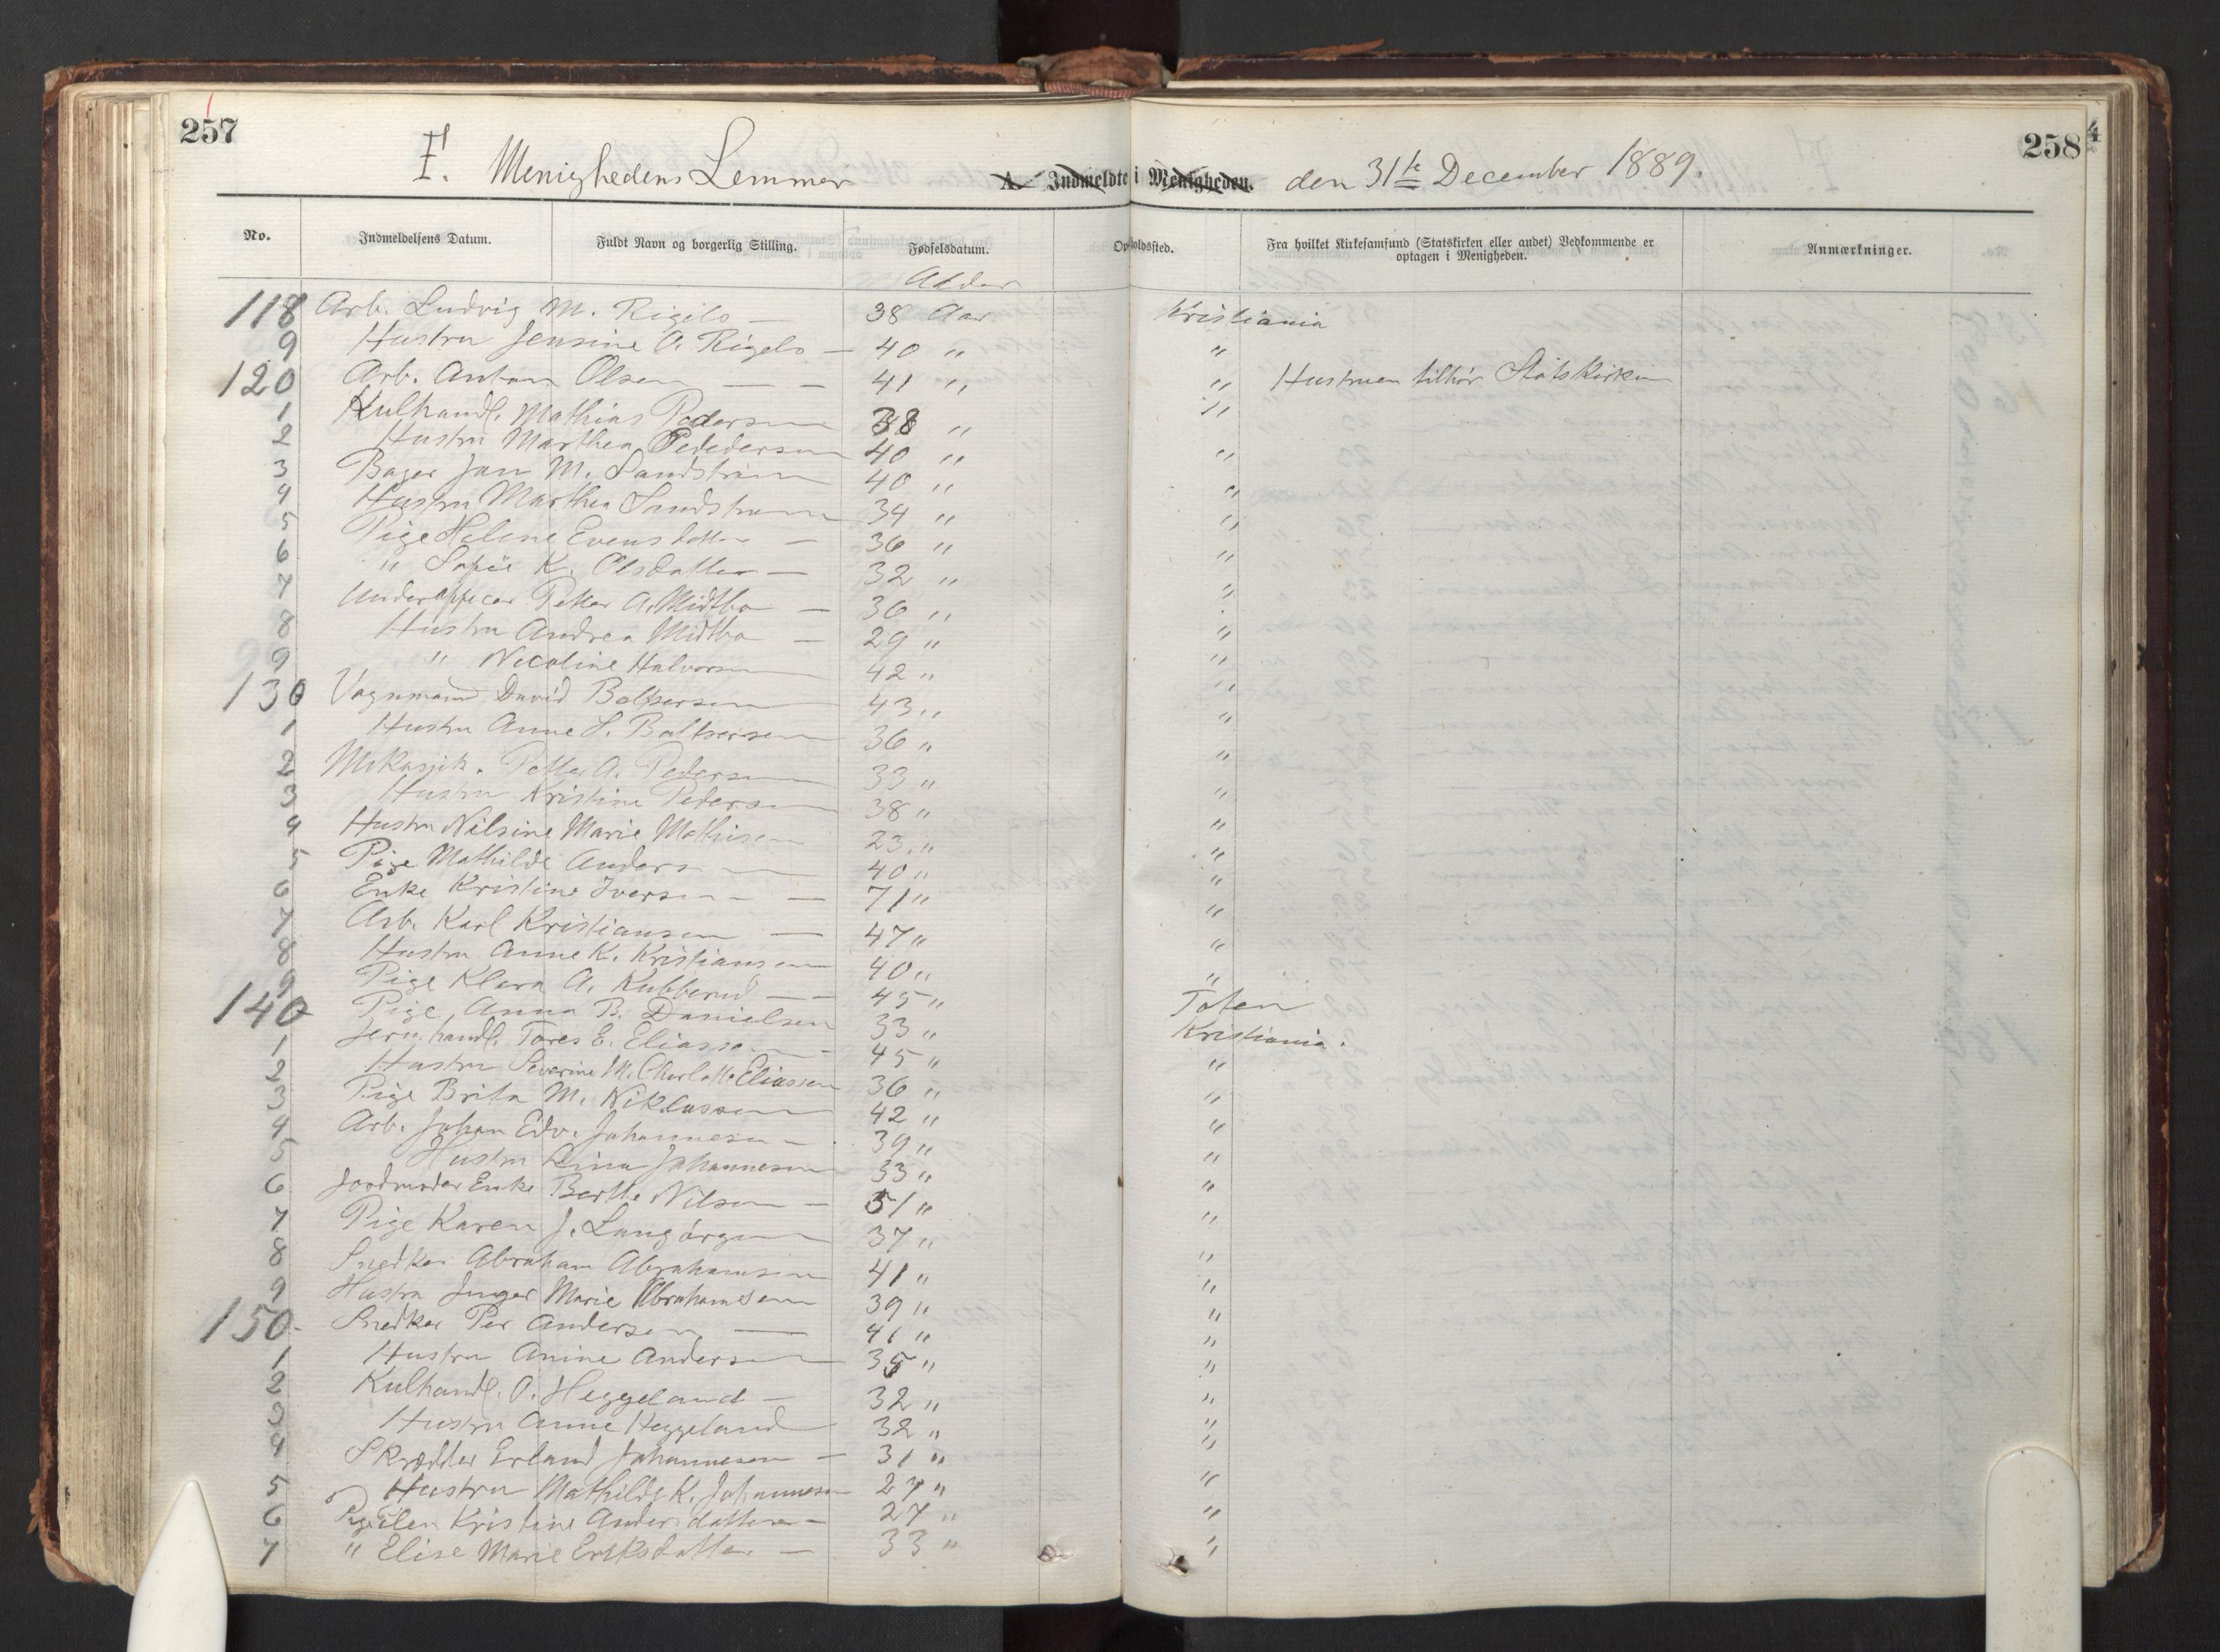 257
258
4
F. Menighedens Lemmer A. Indmeldte i Menigheden. den 31te December 1889.
No. Indmeldelsens Datum. Fuldt Navn og borgerlig Stilling. Fødselsdatum. Opholdssted. Fra hvilket Kirkesamfund (Statskirken eller andet) Vedkommende er optagen i Menigheden. Anmærkninger.
Alder
118 Arb. Ludvig M. Rigels — 38 Aar Kristiania
9 Hustru Jensine O. Rigels — 40 " "
120 Arb. Anton Olsen — — 41 " " Hustruen tilhør Statskirken
1 Kulhandl. Mathias Pedersen 38 " "
2 Hustru Marthea Pededersen 40 " "
3 Bager Jan M. Sandstrøm 40 " "
4 Hustru Marthea Sandstrøm 34 " "
5 Pige Helene Evensdatter — 36 " "
6 " Sofie K. Olsdatter — 32 " "
7 Underofficer Petter A. Midtbø — 36 " "
8 Hustru Andrea Midtbø — 29 " "
9 " Nicoline Halvorsen 42 " "
130 Vognmand David Baltsersen 43 " "
1 Hustru Anne S. Baltsersen 36 " "
2 Petter A. Pedersen 33 " "
3 Hustru Kristine Pedersen 38 " "
4 Hustru Nilsine Marie Mathisen 23 " "
5 Pige Mathilde Andersen 40 " "
6 Enke Kristine Iversen — 71 " "
7 Arb. Karl Kristiansen — 47 " "
8 Hustru Anne K. Kristiansen 40 " "
9 Pige Klara A. Kubberud — — 45 " "
140 Pige Anna B. Danielsen 33 " Toten
1 Jernhandl. Tores E. Eliassen — 45 " Kristiania.
2 Hustru Severine M. Charlotte Eliassen 36 " "
3 Pige Brita M. Niklassen 42 " "
4 Arb. Johan Edv. Johannesen — 39 " "
5 Hustru Lina Johannesen 33 " "
6 Jordmoder Enke Berthe Nilsen — 51 " "
7 Pige Karen J. Langørgen 37 " "
8 Snedker Abraham Abrahamsen 41 " "
9 Hustru Inger Marie Abrahamsen 39 " "
150 Snedker Per Andersen — 41 " "
1 Hustru Anine Andersen 35 " "
2 Kulhandl. O. Heggeland — 32 " "
3 Hustru Anne Heggeland 32 " "
4 Skrædder Erland Johannesen — 31 " "
5 Hustru Mathilde K. Johannesen 27 " "
6 Pige Elen Kristine Andersdatter — 27 " "
7 " Elise Marie Eriksdatter — 33 " "